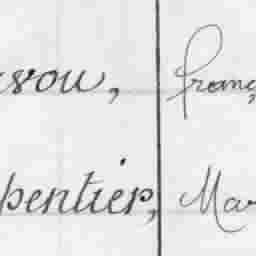 vou, franç
pentier, Mar